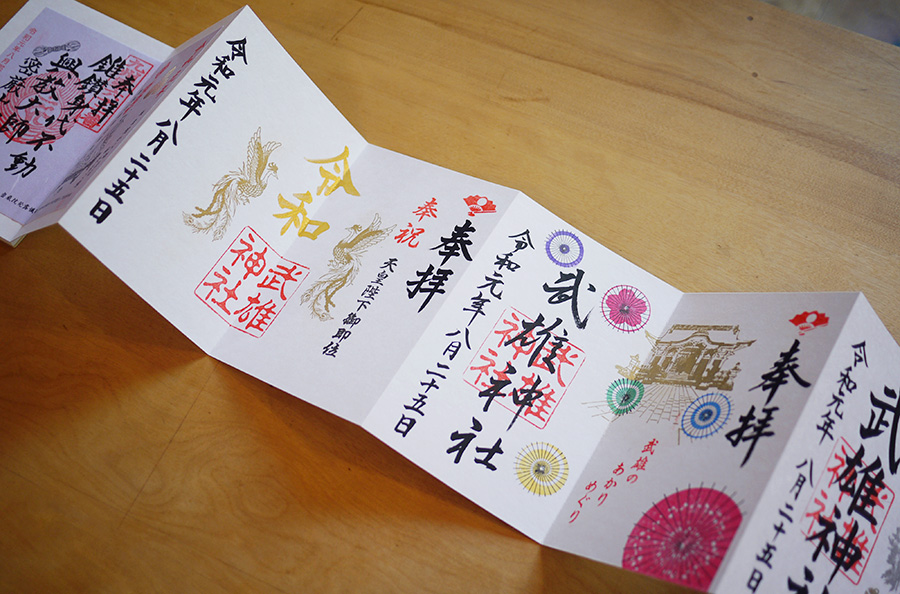 奉拝
武雄神社
武雄神社
令和元年 八月二十五日
奉拝
武雄神社
武雄神社
令和元年 八月二十五日
武雄の
あかり
めぐり
奉拝
奉祝
天皇陛下御即位
令和
武雄
神社
令和元年 八月二十五日
奉拝
鎧鎖身代不動
興教大師
密厳
令和元年八月